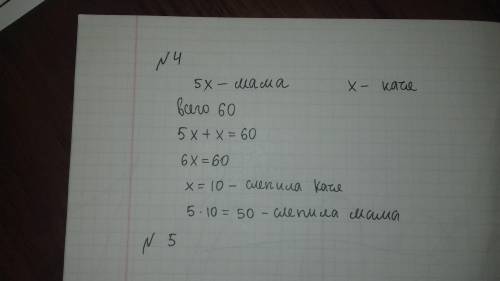 №4
5x – мама x – катя
всего 60
5x + x = 60
6x = 60
x = 10 – слепила Катя
5 · 10 = 50 – слепила мама
№ 5